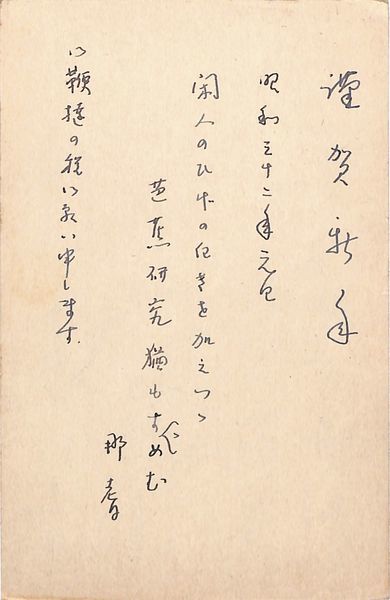 謹賀新年
昭和三十二年元旦
閑人のひまの を加えつゝ
芭蕉研究猶もすゝめむ
那
御鞭撻の程御願い申します